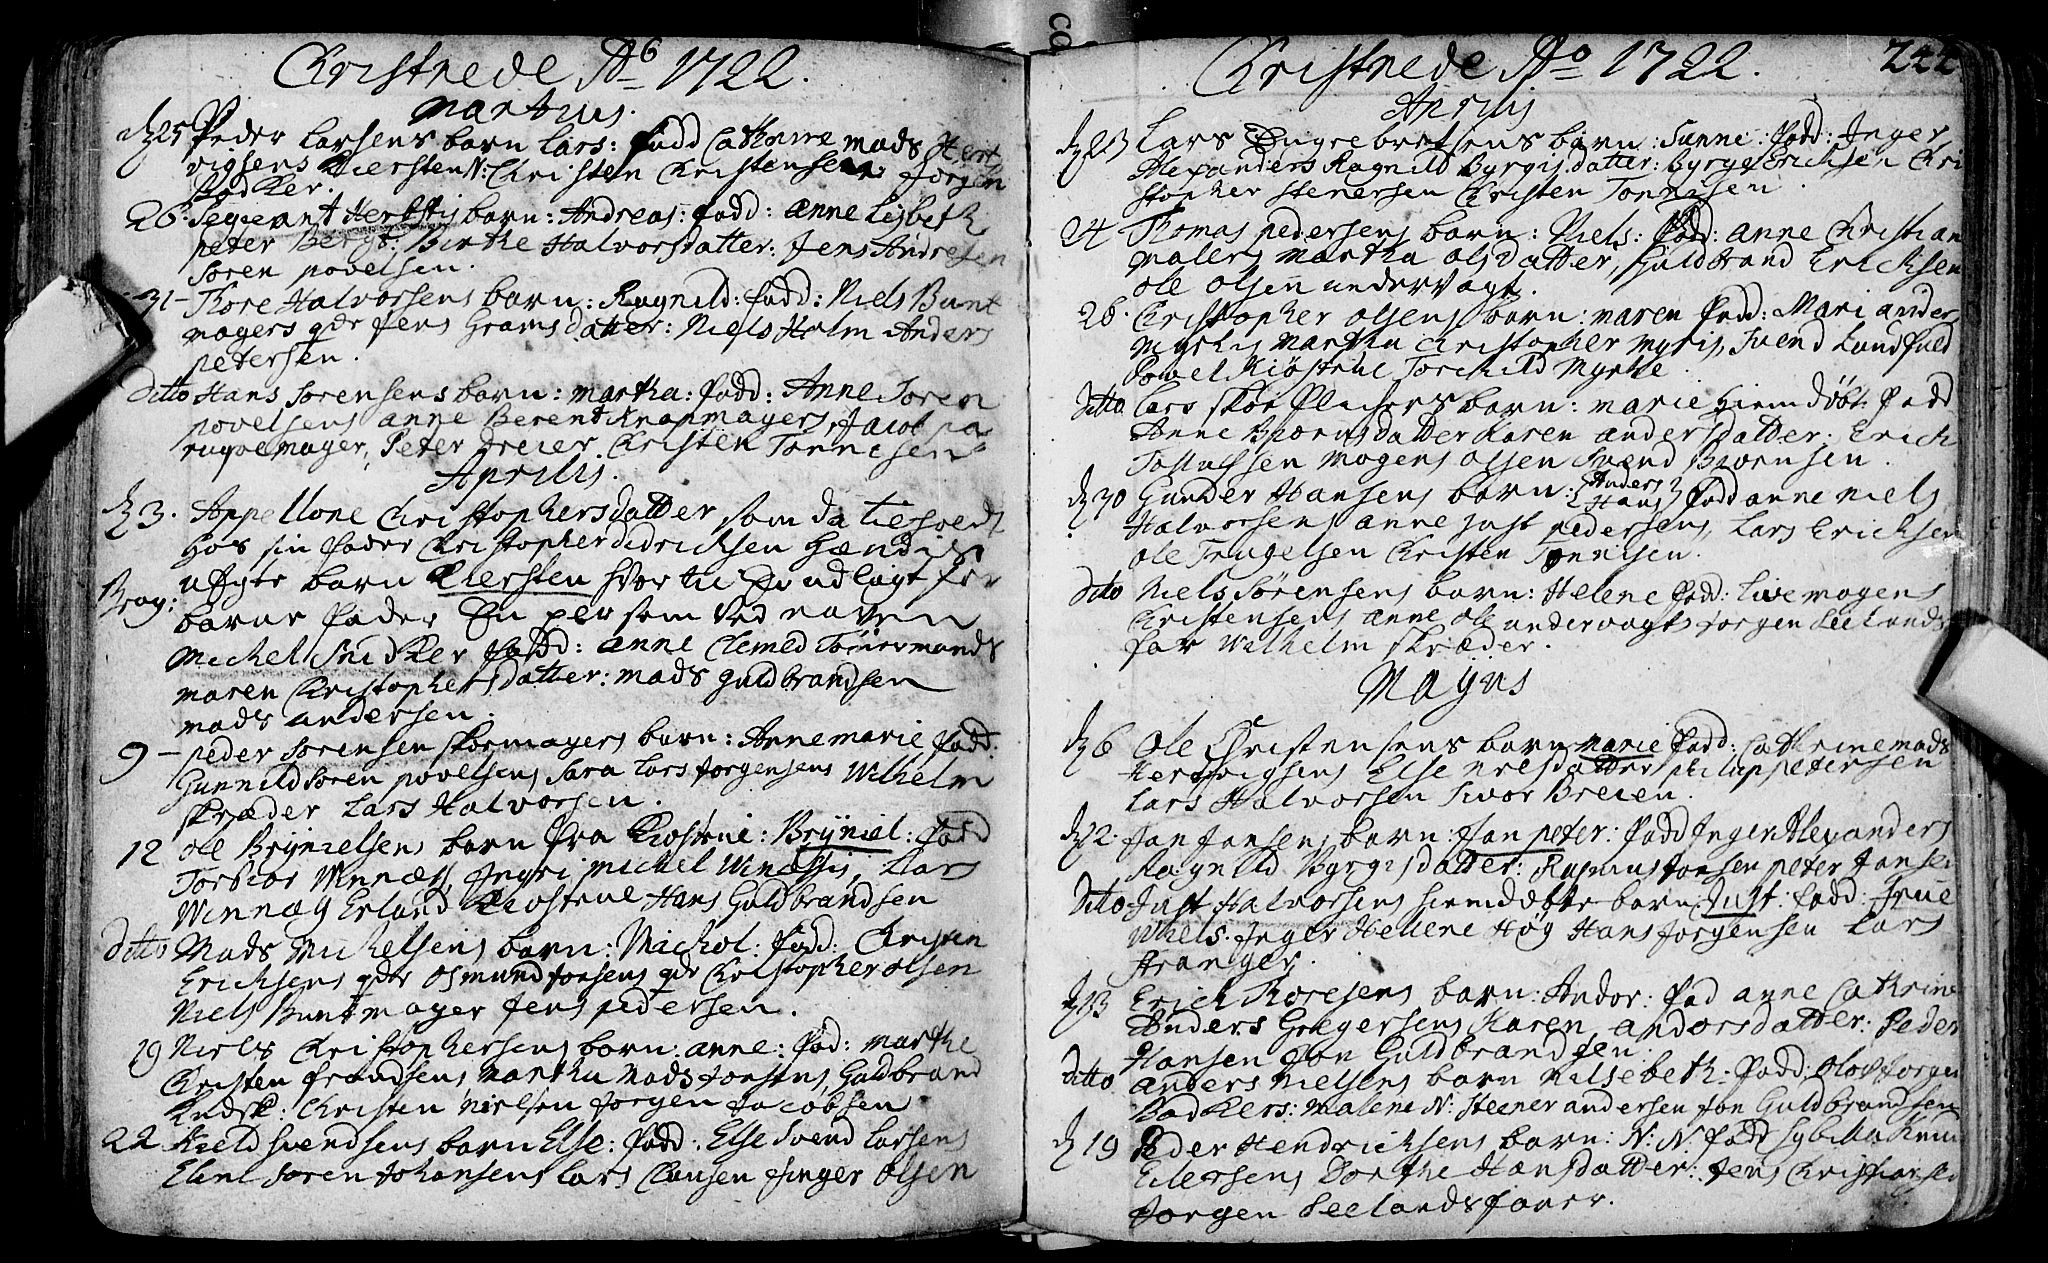 Christnede Ao 1722.
Martius.
d 25 Peder Larsens barn Lars: fadd Cathrine Mads Hert
vigsens Kiersten N: Christen Christensen Jørgen
Bødker.
26. Sergeant Herbstis barn: Andreas: fadd: anne Lisbeth
peter Bergs: Birthe Halvorsdatter: Jens Andresen
Søren povelsen.
31 - Thore Halvorsens barn: Ragnild: fadd: Niels Bunt
magers qde Jens Gramsdatter: Niels Holm Anders
petersen.
ditto Hans Sørensens barn: Martha: fadd: Anne Søren
povelsens anne Berent Knapmagers, Jacob pa
ruqvemager, Peter Freier Christen Tønnesen
Aprilis.
d 3. Appellone Christophersdatter som da tilholdt
hos sin fader Christopher didricksen hændis
Brag: uægte barn Kiersten hvor til er udlagt for
barne fader En person ved naven
Michel Snidker fadd: anne Clemed Tømmermands
maren Christophersdatter: mads guldbrandsen
mads andersen.
9 - peder Sørensen skomagers barn: Anne marie fadd.
Gunnild Søren povelsens, Sara Lars Jørgensens Wilhelm
skræder Lars Halvorsen.
12 ole Brynielsens barn fra Kiøstrue: Bryniel: fadd
Torbiør Winnæss, Ingri Michel Winæssis, Lars
Winnæs Erland Kiøstrue Hans Guldbrandsen
ditto Mads Michelsens barn: Michel: fadd: Christen
Ericksens qde Osmund Joensens qde Christopher olsen
Niels Buntmager Jens pedersen.
19 Niels Christophersens barn: anne: fad: marthe
Christen frandsens Martha Mads Jonsens, Guldbrand
Rudsk: Christen Nielsen Jørgen Jacobsen
22 Kield Svendsens barn Else: fadd: Else Svend Larsens
Eline Søren Johansens Lars Clausen Finger Olsen
Christnede Ao 1722. 242
Aprilis
d 23 Lars Engrebretsens barn: Sunne: fadd: Inger
Alexanders Ragnild Byrgisdatter: Byrge Ericksen Chri
stopher stenersen Christen Tønnisen.
24 Thomas pedersens barn: Niels: fadd: anne Christian
malers Martha olsdatter, Guldbrand Ericksen
ole olsen undervagt.
26. Christopher olsens barn: maren fadd: Mari anders
Myrhis Martha Christopher myris, Svend Lundfald
Powel Kiøstrue Torchild Myrhe.
ditto Lars skoeflichers barn: marie hiemdøbt fadd
Anne Biørnsdatter Karen andersdatter: Erick
Tollufssen Mogens olsen Svend Biørnsen.
d 30 Gunder Hansens barn: Anders Hans fadd anne niels
Halvorsens anne Just pedersens, Lars Ericksen
ole Trugelsen Christen Tønnisen.
dito Niels Sørensens barn: Helene fadd: Live mogens
Christensens anne ole undervagts Jørgen Seelands
far Wilhelm skræder.
Mayus
d 6 Ole Christensens barn marie fadd: Cathrine mads
Hertvigsens Else nielsdatter philip petersen
Lars Halvorsen Iwor Breien.
d 12. Jan Jansens barn: Jan peter: fadd Inger Alexanders
Ragnild Byrgisdatter: Rasmus Jonsen peter Jansen
ditto Just Halvorsens hiemdøbte barn Just: fadd: Frue
Whels. Inger Hellene Høg Hans Jørgensen Lars
Franger.
d 13 Erick Thoresens barn: Andor: fad anne Cathrine
Anders Gregersens Karen andorsdatter: Peder
Hansen Jon Guldbrandsen.
ditto anders Nielsens barn Nilsebeth: fadd: Olov Jørgen
Bødkers: Malene N: Steener andersen Jon Guldbrandsen
d 19 Peder Hendricksens barn: N: N fadd Sybilla Knud
Eilersens Dorthe Hansdatter: Jens Christiansen
Jørgen Seelandsfarer.